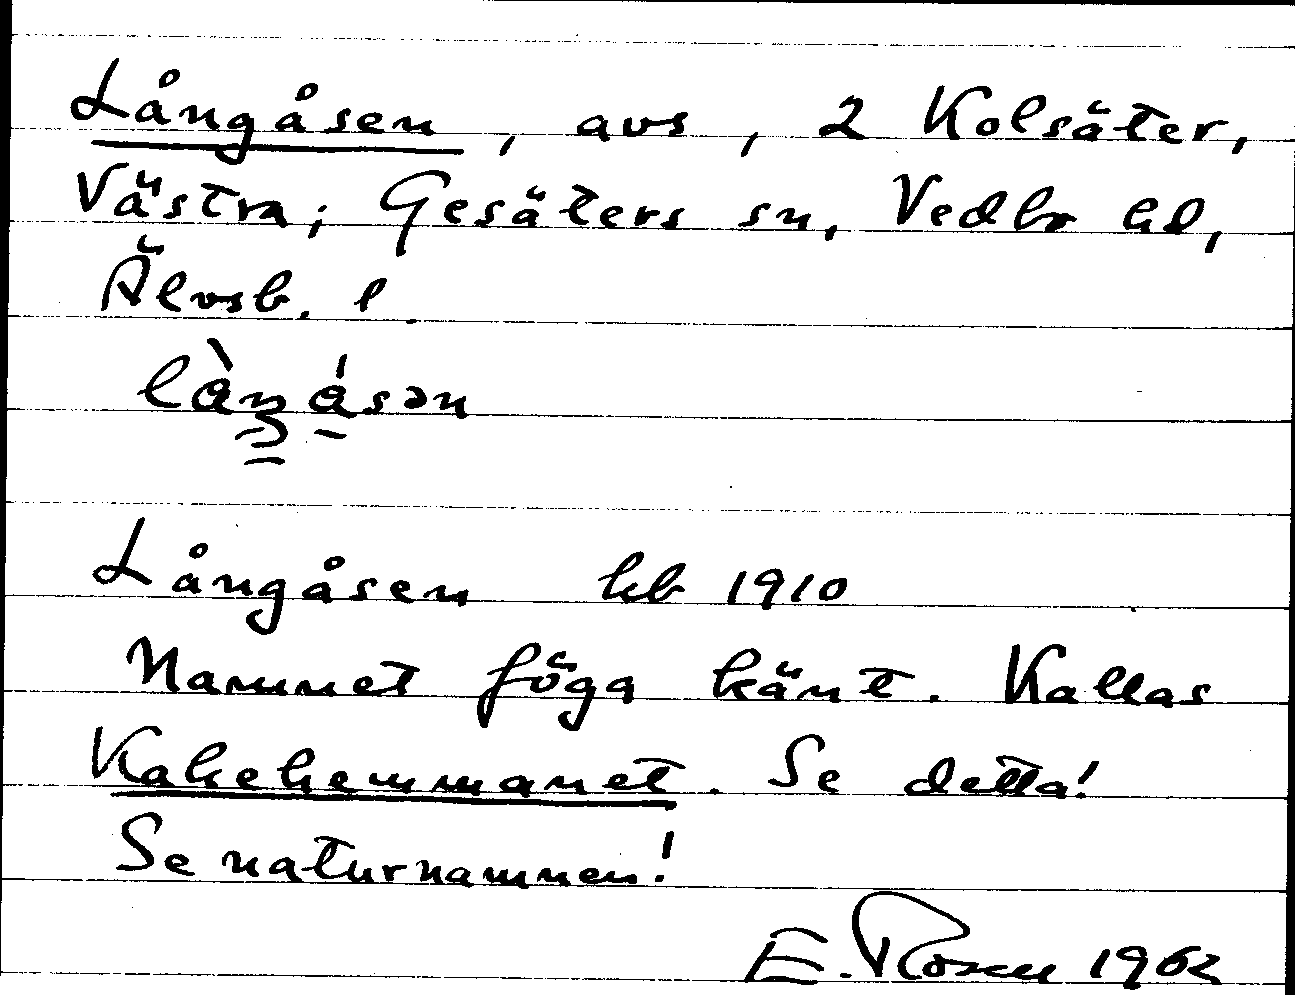 Långåsen, avs, 2 Kolsäter,
Västra; Gesäters sn, Vedbo hd,
Älvsb. l.
Långåsen hb 1910
Namnet föga känt. Kallas
Kakehemmanet. Se detta!
Se naturnamnen!
E. Rosen 1962